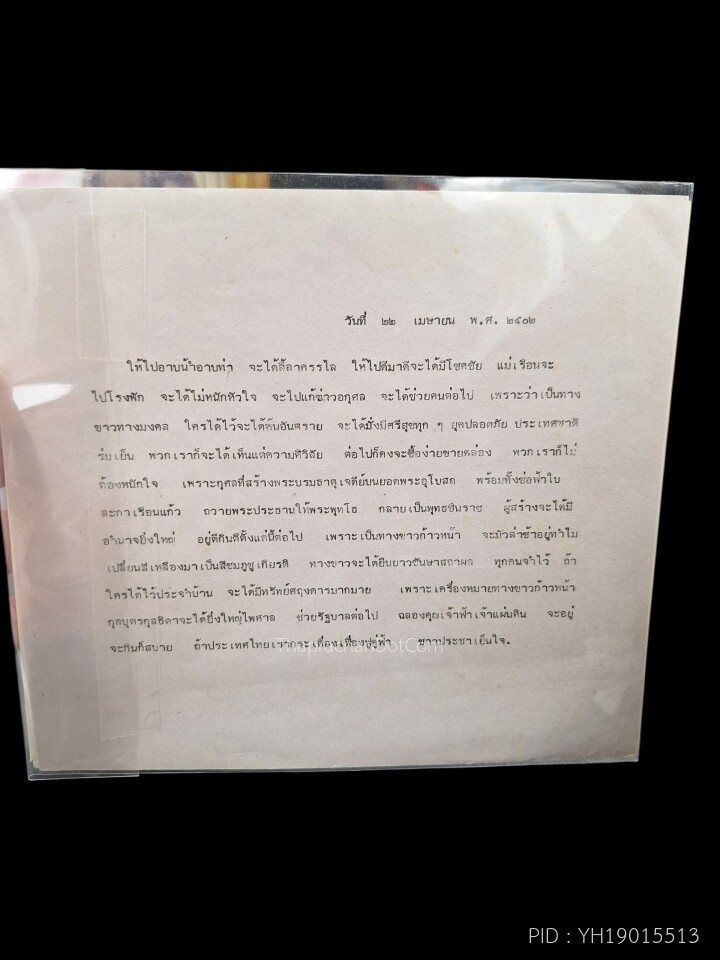 วันที่ ๒๒ เมษายน พ.ศ. ๒๕๐๒
ให้ไปอาบน้ำอาบท่า จะได้ลีลาครรไล ให้ไปดีมาดีจะได้มีโชคชัย แม่เรือนจะ
ไปโรงพัก จะได้ไม่หนักหัวใจ จะไปแก้ข่าวอกุศล จะได้ช่วยคนต่อไป เพราะว่าเป็นทาง
ขาวทางมงคล ใครได้ไว้จะได้พ้นอันตราย จะได้มั่งมีศรีสุขทุก ๆ ยุคปลอดภัย ประเทศชาติ
ร่มเย็น พวกเราก็จะได้เห็นแต่ความศิวิลัย ต่อไปก็คงจะซื้อง่ายขายคล่อง พวกเราก็ไม่
ต้องหนักใจ เพราะกุศลที่สร้างพระบรมธาตุเจดีย์บนยอดพระอุโบสถ พร้อมทั้งช่อฟ้าใบ
ละกาเรือนแก้ว ถวายพระประธานให้พระพุทโธ กลายเป็นพุทธชินราช ผู้สร้างจะได้มี
อำนาจยิ่งใหญ่ อยู่ดีกินดีตั้งแต่นี้ต่อไป เพราะเป็นทางขาวก้าวหน้า จะมัวล่าช้าอยู่ทำไม
เปลี่ยนสีเหลืองมาเป็นสีชมภูชูเกียรติ ทางขาวจะได้ยืนยาวชันษาสถาผล ทุกคนจำไว้ ถ้า
ใครได้ไว้ประจำบ้าน จะได้มีทรัพย์ศฤงคารมากมาย เพราะเครื่องหมายทางขาวก้าวหน้า
กุลบุตรกุลธิดาจะได้ยิ่งใหญ่ไพศาล ช่วยรัฐบาลต่อไป ฉลองคุณเจ้าฟ้าเจ้าแผ่นดิน จะอยู่
จะกินก็สบาย ถ้าประเทศไทยเรากระเดื่องเฟื่องฟูคู่ฟ้า ชาวประชาเย็นใจ.
ThaprachanDotCom
PID : YH19015513